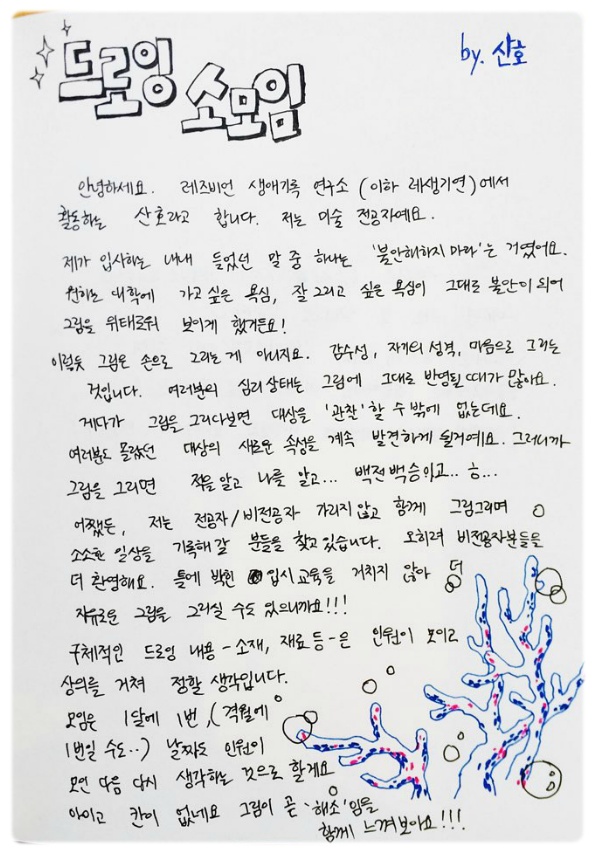 드로잉 소모임
by. 산호
안녕하세요. 레즈비언 생애기록 연구소 (이하 레생기연)에서
활동하는 산호라고 합니다. 저는 미술 전공자예요.
제가 입시하는 내내 들었던 말 중 하나는 '불안해하지 마라'는 거였어요.
원하는 대학에 가고 싶은 욕심, 잘 그리고 싶은 욕심이 그대로 불안이 되어
그림을 위태로워 보이게 했거든요!
이렇듯 그림은 손으로 그리는 게 아니지요. 감수성, 자기의 성격, 마음으로 그리는
것입니다. 여러분의 심리 상태는 그림에 그대로 반영될 때가 많아요.
게다가 그림을 그리다보면 대상을 '관찰'할 수 밖에 없는데요.
여러분도 몰랐던 대상의 새로운 속성을 계속 발견하게 될거예요. 그러니까
그림을 그리면 적을 알고 나를 알고... 백전백승이고... 흐...
어쨌든, 저는 전공자/비전공자 가리지 않고 함께 그림그리며
소소한 일상을 기록해 갈 분들을 찾고 있습니다. 오히려 비전공자분들을
더 환영해요. 틀에 박힌 입시 교육을 거치지 않아 더
자유로운 그림을 그리실 수도 있으니까요!!!
구체적인 드로잉 내용 - 소재, 재료 등 - 은 인원이 모이고
상의를 거쳐 정할 생각입니다.
모임은 1달에 1번, (격월에
1번일 수도..) 날짜도 인원이
모인 다음 다시 생각하는 것으로 할게요
아이고 칸이 없네요 그림이 곧 '해소'임을
함께 느껴보아요!!!